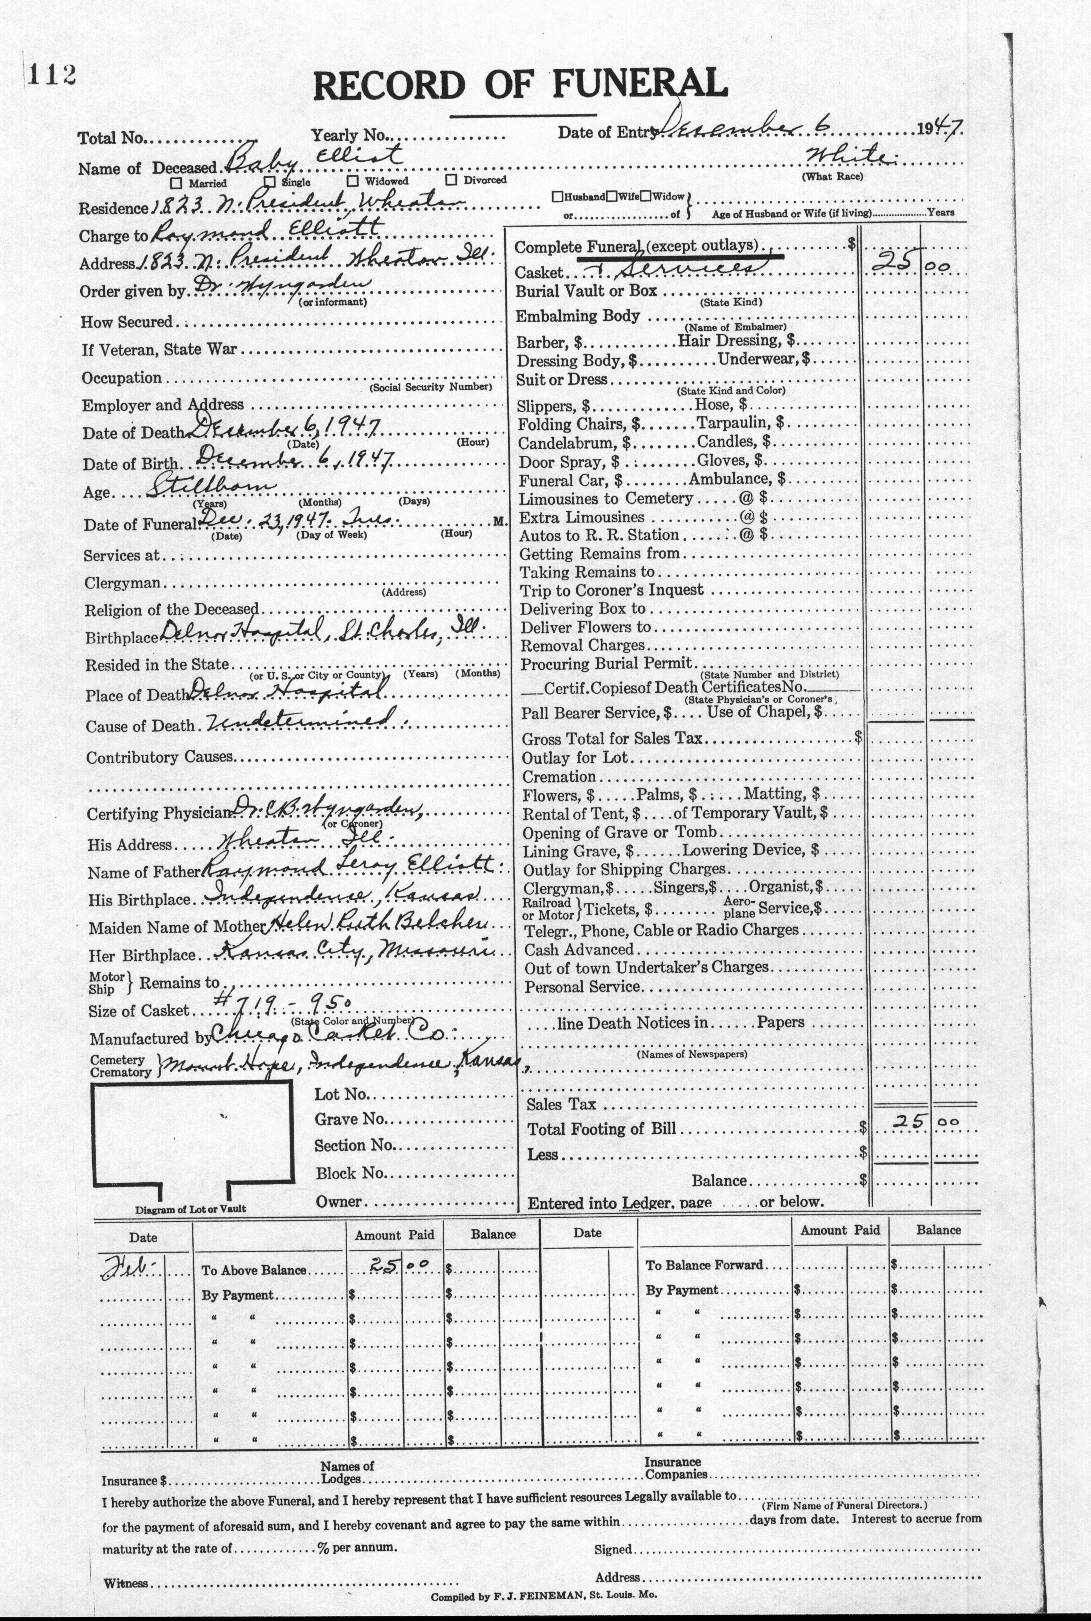 112
RECORD OF FUNERAL
Total No. Yearly No. Date of Entry December 6 1947.
Name of Deceased Baby Elliot White
(What Race)
☐ Married ☐ Single ☐ Widowed ☐ Divorced
Residence 1823 N. President, Wheaton ☐Husband☐Wife☐Widow}
or of } Age of Husband or Wife (if living) Years
Charge to Raymond Elliott
Address 1823 N. President Wheaton Ill.
Order given by Dr. Wyngarden
(or informant)
How Secured
If Veteran, State War
Occupation
(Social Security Number)
Employer and Address
Date of Death December 6, 1947
(Date) (Hour)
Date of Birth December 6, 1947
Age Stillborn
(Years) (Months) (Days)
Date of Funeral Dec. 23, 1947. Tues. M.
(Date) (Day of Week) (Hour)
Services at
Clergyman
(Address)
Religion of the Deceased
Birthplace Delnor Hospital, St. Charles, Ill.
Resided in the State
(or U. S. or City or County) (Years) (Months)
Place of Death Delnor Hospital
Cause of Death Undetermined.
Contributory Causes
Certifying Physician Dr. C.B. Wyngarden,
(or Coroner)
His Address Wheaton Ill.
Name of Father Raymond Leroy Elliott.
His Birthplace Independence, Kansas
Maiden Name of Mother Helen Ruth Belcher
Her Birthplace Kansas City, Missouri
Motor
Ship } Remains to
Size of Casket #719 - 950
(State Color and Number)
Manufactured by Chicago Casket Co.
Cemetery
Crematory } Mount Hope, Independence, Kansas,
Lot No.
Grave No.
Section No.
Block No.
Owner
Diagram of Lot or Vault
Complete Funeral (except outlays) $
Casket + Services 25 00
Burial Vault or Box
(State Kind)
Embalming Body
(Name of Embalmer)
Barber, $ Hair Dressing, $
Dressing Body, $ Underwear, $
Suit or Dress
(State Kind and Color)
Slippers, $ Hose, $
Folding Chairs, $ Tarpaulin, $
Candelabrum, $ Candles, $
Door Spray, $ Gloves, $
Funeral Car, $ Ambulance, $
Limousines to Cemetery @ $
Extra Limousines @ $
Autos to R. R. Station @ $
Getting Remains from
Taking Remains to
Trip to Coroner's Inquest
Delivering Box to
Deliver Flowers to
Removal Charges
Procuring Burial Permit
(State Number and District)
Certif. Copies of Death Certificates No.
(State Physician's or Coroner's)
Pall Bearer Service, $ Use of Chapel, $
Gross Total for Sales Tax $
Outlay for Lot
Cremation
Flowers, $ Palms, $ Matting, $
Rental of Tent, $ of Temporary Vault, $
Opening of Grave or Tomb
Lining Grave, $ Lowering Device, $
Outlay for Shipping Charges
Clergyman, $ Singers, $ Organist, $
Railroad
or Motor } Tickets, $ Aero-
plane Service, $
Telegr., Phone, Cable or Radio Charges
Cash Advanced
Out of town Undertaker's Charges
Personal Service
line Death Notices in Papers
(Names of Newspapers)
Sales Tax
Total Footing of Bill $ 25 00
Less $
Balance $
Entered into Ledger, page or below.
Date Amount Paid Balance Date Amount Paid Balance
Feb. To Above Balance 25 00 $ To Balance Forward $
By Payment $ $ By Payment $ $
" " $ $ " " $ $
" " $ $ " " $ $
" " $ $ " " $ $
" " $ $ " " $ $
" " $ $ " " $ $
" " $ $ " " $ $
Insurance $ Names of
Lodges Insurance
Companies
I hereby authorize the above Funeral, and I hereby represent that I have sufficient resources Legally available to
(Firm Name of Funeral Directors.)
for the payment of aforesaid sum, and I hereby covenant and agree to pay the same within days from date. Interest to accrue from
maturity at the rate of % per annum. Signed
Witness Address
Compiled by F. J. FEINEMAN, St. Louis. Mo.